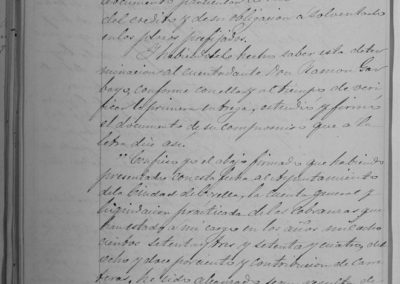 documento particular
del credito y de su obligacion a solventarlo
en los plazos prefijados.
Y habiendole hecho saber esta deter-
minacion al cuentadante Don Ramon Gar-
bayo, conforme con ella y al tiempo de veri-
ficar la primera entrega, estendio y firmo
el documento de su compromiso que a la
letra dice asi.
"Confieso yo el abajo firmado que habiendo
presentado con esta fecha al Ayuntamiento
de la Ciudad de la cuenta general y
liquidacion practicada de las cobranzas que
han estado a mi cargo en los años mil ocho
cientos setenta y tres y setenta y cuatro, del
ocho y doce por ciento y contribucion de Carre
teras, he sido